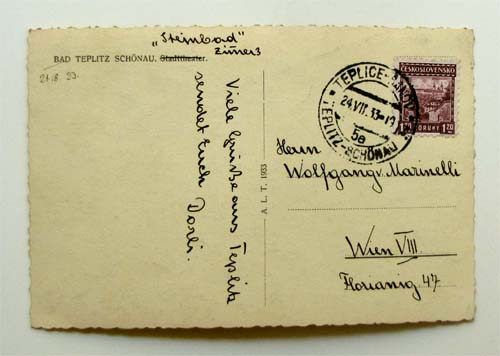 "Steinbad"
Zimer 3
BAD TEPLITZ SCHÖNAU. Stadttheater.
Viele Grüße aus Teplitz
sendet Euch Dorli.
A. L. T. 1933
TEPLICE-ŠANOV
24.VII.33-12
5a
TEPLITZ-SCHÖNAU
ČESKOSLOVENSKO
1.20
KORUNY 1.20
Herrn
Wolfgang v. Marinelli
Wien VIII.
Florianig 47